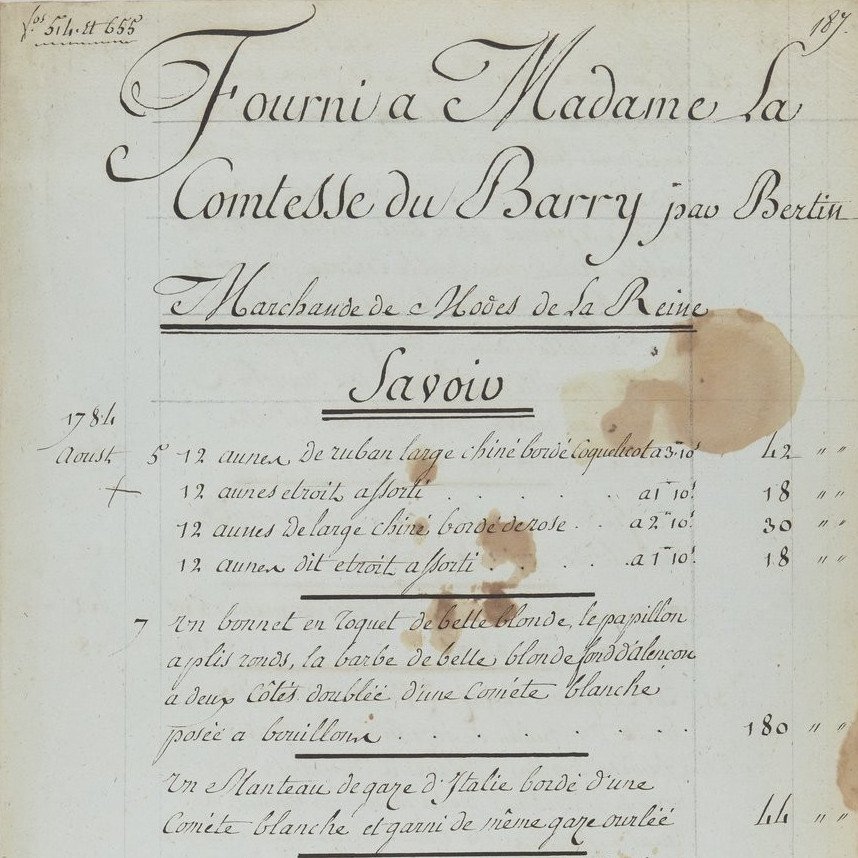 fos 514. et 655
187.
Fourni a Madame La
Comtesse du Barry par Bertin
Marchande de Modes de La Reine
Savoir
1784
Aoust 5 12 aunes de ruban large chiné bordé Coquelicot a 3# 10s 42 " "
12 aunes etroit assorti . . . . . . a 1# 10s 18 " "
12 aunes de large chiné bordé de rose . . a 2# 10s 30 " "
12 aunes dit etroit assorti . . . . . a 1# 10s 18 " "
7 Un bonnet en Toquet de belle blonde, le papillon
a plis ronds, la barbe de belle blonde fond d'alençon
a deux Côtés doublée d'une Cométe blanche
posée a bouillons . . . . . . . . 180 " "
Un Manteau de gaze d'Italie bordé d'une
Cométe blanche et garni de même gaze ourlée 44 " "